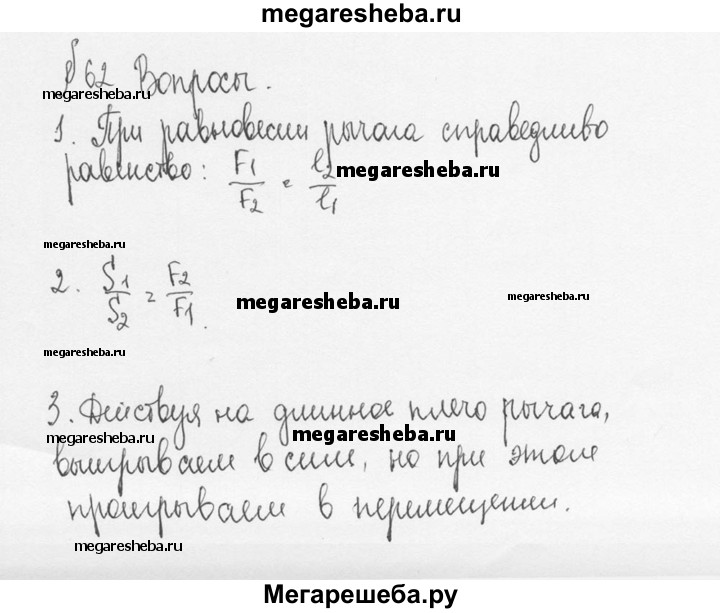 megaresheba.ru
§ 62 Вопросы.
megaresheba.ru
1. При равновесии рычага справедливо
равенство: F1/F2 = l2/l1
megaresheba.ru
megaresheba.ru
2. S1/S2 = F2/F1.
megaresheba.ru
megaresheba.ru
megaresheba.ru
3. Действуя на длинное плечо рычага,
megaresheba.ru
выигрываем в силе, но при этом
проигрываем в перемещении.
megaresheba.ru
Мегарешеба.ру